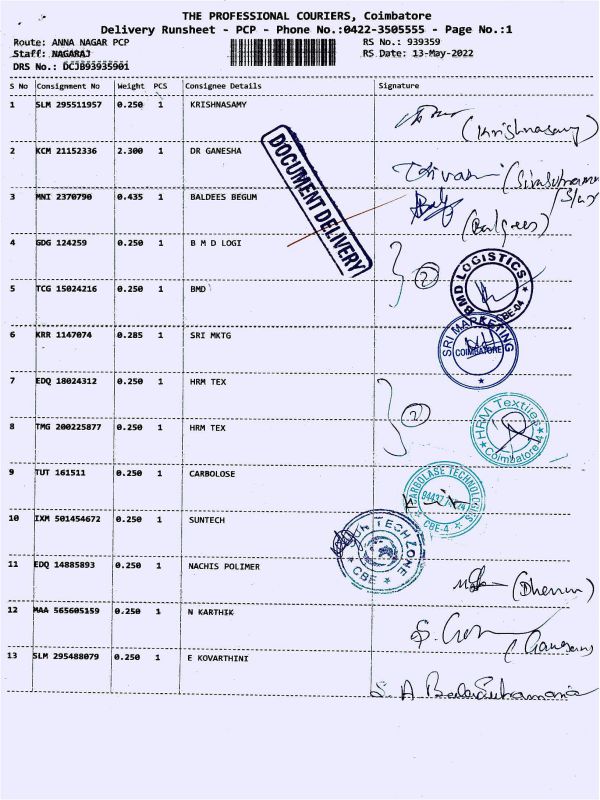 THE PROFESSIONAL COURIERS, Coimbatore
Delivery Runsheet - PCP - Phone No.:0422-3505555 - Page No.:1
Route: ANNA NAGAR PCP RS No.: 939359
Staff: NAGARAJ RS Date: 13-May-2022
DRS No.: DCJB93935901
S No Consignment No Weight PCS Consignee Details Signature
1 SLM 295511957 0.250 1 KRISHNASAMY (Krishnasamy)
2 KCM 21152336 2.300 1 DR GANESHA
DOCUMENT DELIVERY
3 MNI 2370790 0.435 1 BALDEES BEGUM (Balqees)
4 GDG 124259 0.250 1 B M D LOGI 2
BMD LOGISTICS CBE-04
5 TCG 15024216 0.250 1 BMD
6 KRR 1147074 0.285 1 SRI MKTG
SRI MARKETING COIMBATORE
7 EDQ 18024312 0.250 1 HRM TEX 2
HRM Textiles Coimbatore-4
8 TMG 200225877 0.250 1 HRM TEX
9 TUT 161511 0.250 1 CARBOLOSE
CARBOLASE TECHNOLOGIES CBE-4
10 IXM 501454672 0.250 1 SUNTECH
SUN TECHZONE CBE
11 EDQ 14885893 0.250 1 NACHIS POLIMER
12 MAA 565605159 0.250 1 N KARTHIK
13 SLM 295488079 0.250 1 E KOVARTHINI
S. A. Balasubramania